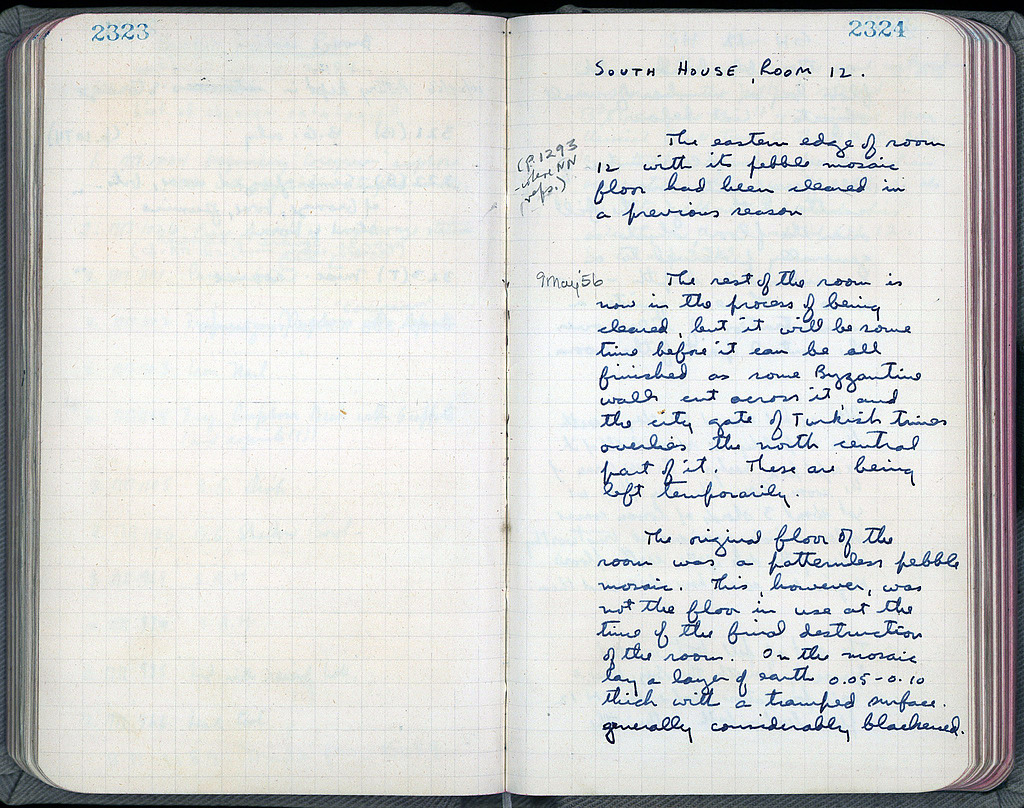 2323
2324
SOUTH HOUSE, ROOM 12.
(p.1293
where NN
refs.)
The eastern edge of room
12 with its pebble mosaic
floor had been cleared in
a previous season
9 May '56
The rest of the room is
now in the process of being
cleared, but it will be some
time before it can be all
finished as some Byzantine
walls cut across it, and
the city gate of Turkish times
overlies the north central
part of it. These are being
left temporarily.
The original floor of the
room was a patternless pebble
mosaic. This, however, was
not the floor in use at the
time of the final destruction
of the room. On the mosaic
lay a layer of earth 0.05-0.10
thick with a tramped surface.
generally considerably blackened.